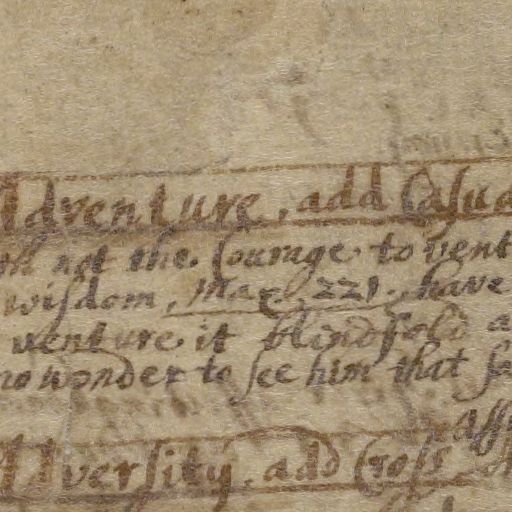 Adventure, add Casua
not the Courage to vent
wisdom, Max. 221, have
venture it blindfold a
no wonder to see him that
Adversity, add Cross